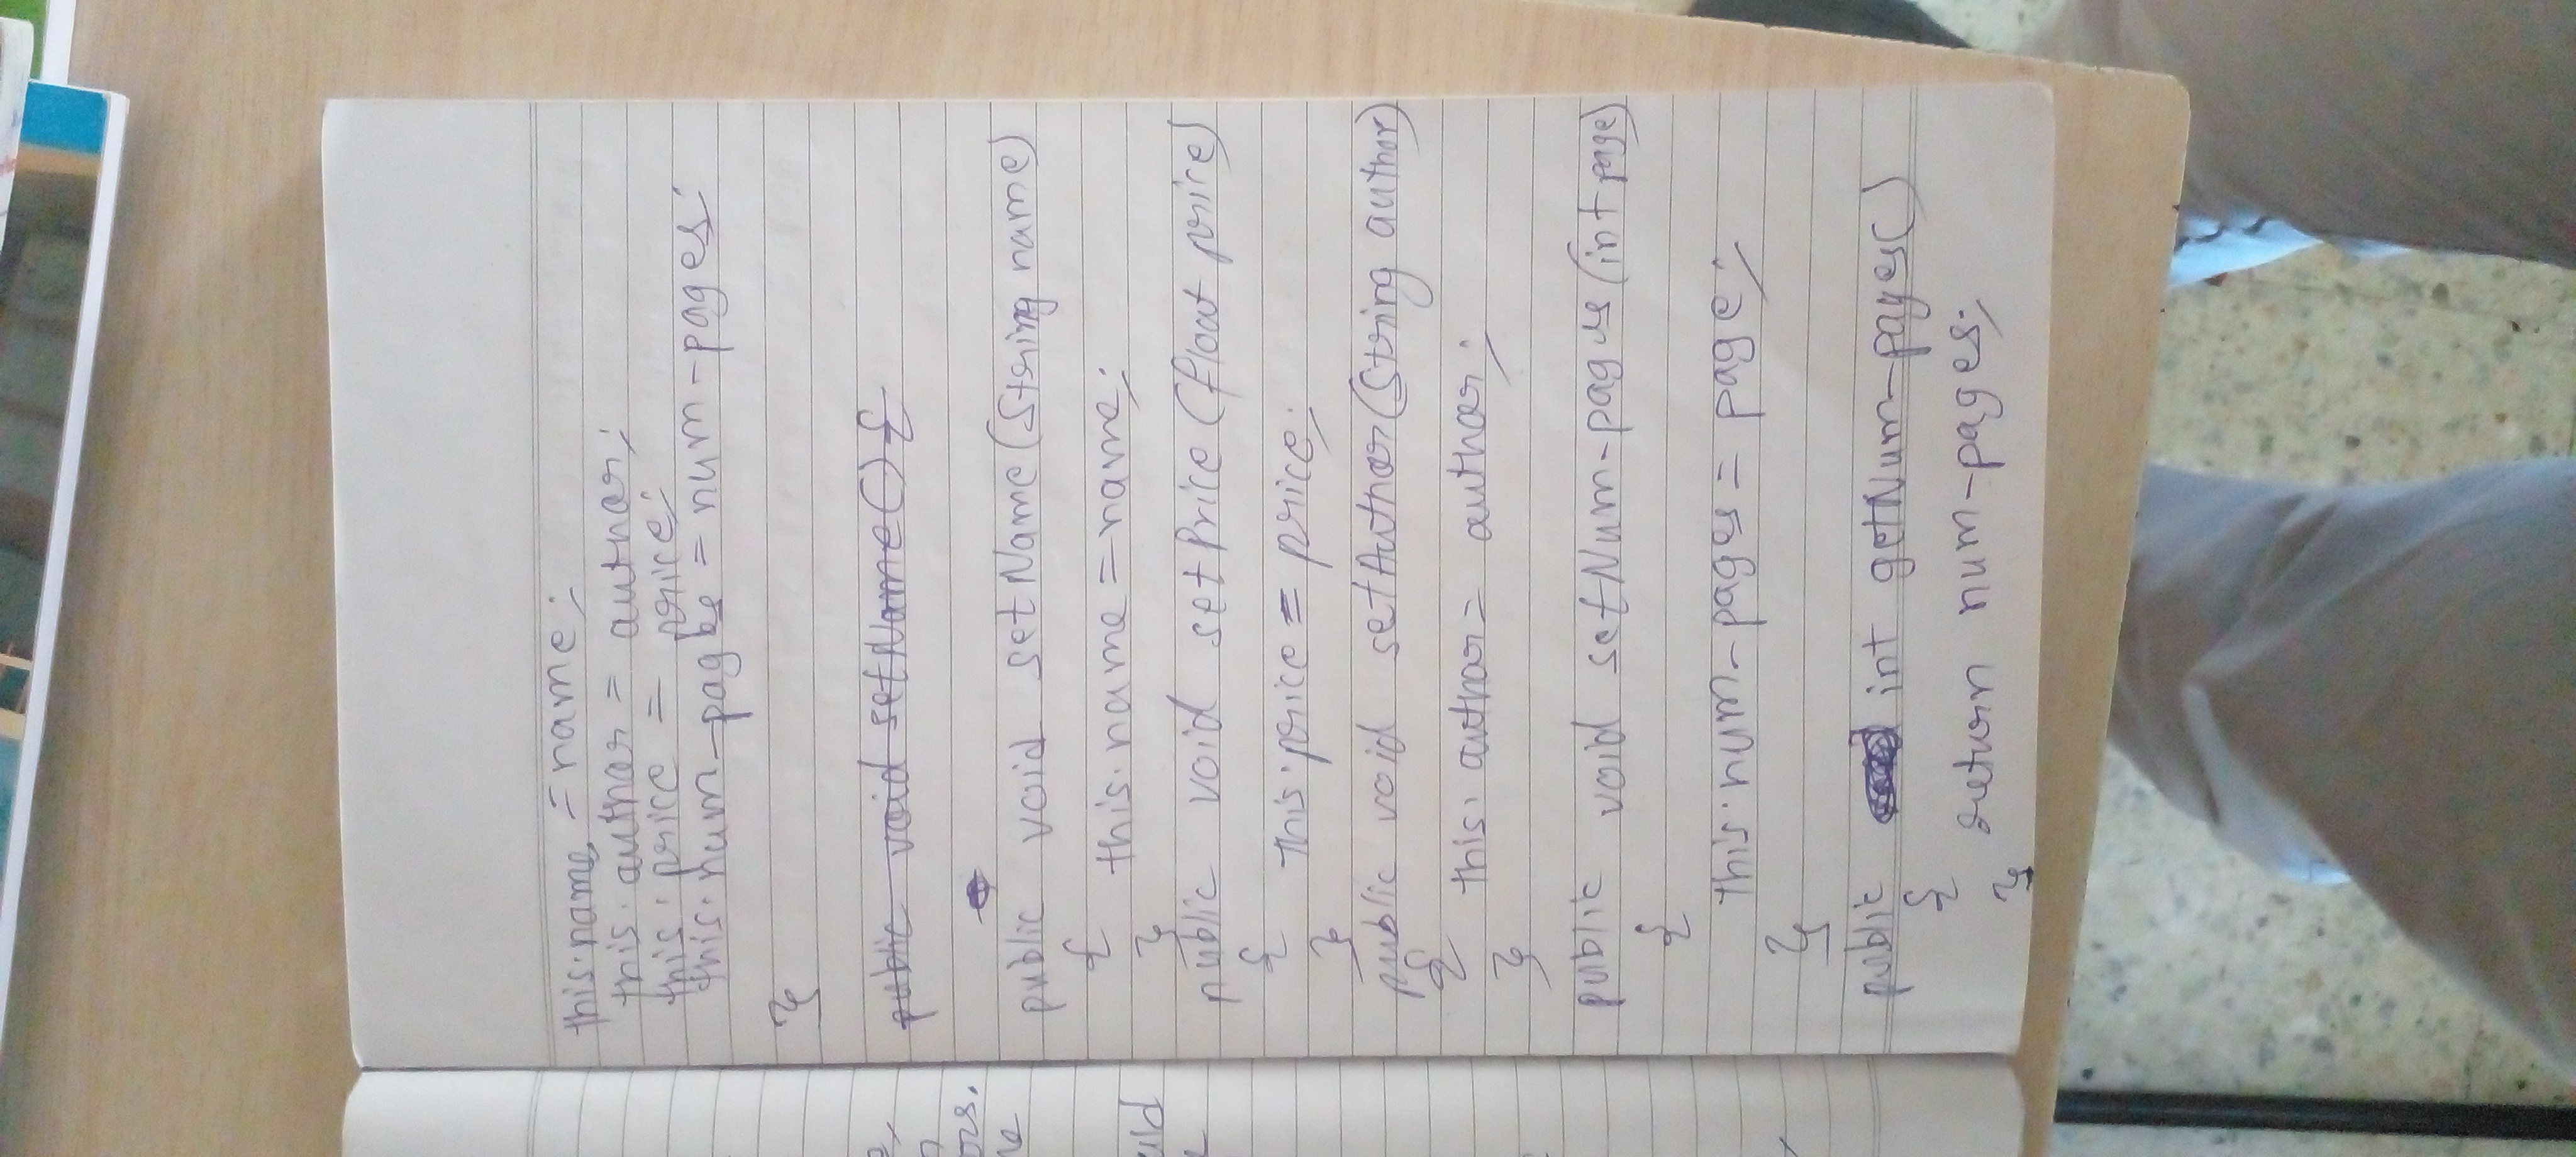 this.name = name;
this.author = author;
this.price = price;
this.num_pages = num_pages;
}
public void setName() {
public void setName(String name)
{
this.name = name;
}
public void setPrice(float price)
{
this.price = price;
}
public void setAuthor(String author)
{
this.author = author;
}
public void setNum_pages(int page)
{
this.num_pages = page;
}
public int getNum_pages()
{
return num_pages;
}